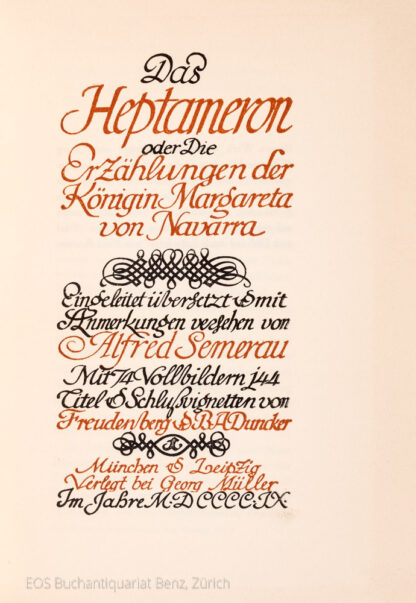 Das
Heptameron
oder Die
Erzählungen der
Königin Margareta
von Navarra
Eingeleitet übersetzt & mit
Anmerkungen versehen von
Alfred Semerau
Mit 74 Vollbildern 144
Titel & Schlußvignetten von
Freudenberg & B A Duncker
München & Leipzig
Verlegt bei Georg Müller
Im Jahre M·D CCCC·IX·
EOS Buchantiquariat Benz, Zürich